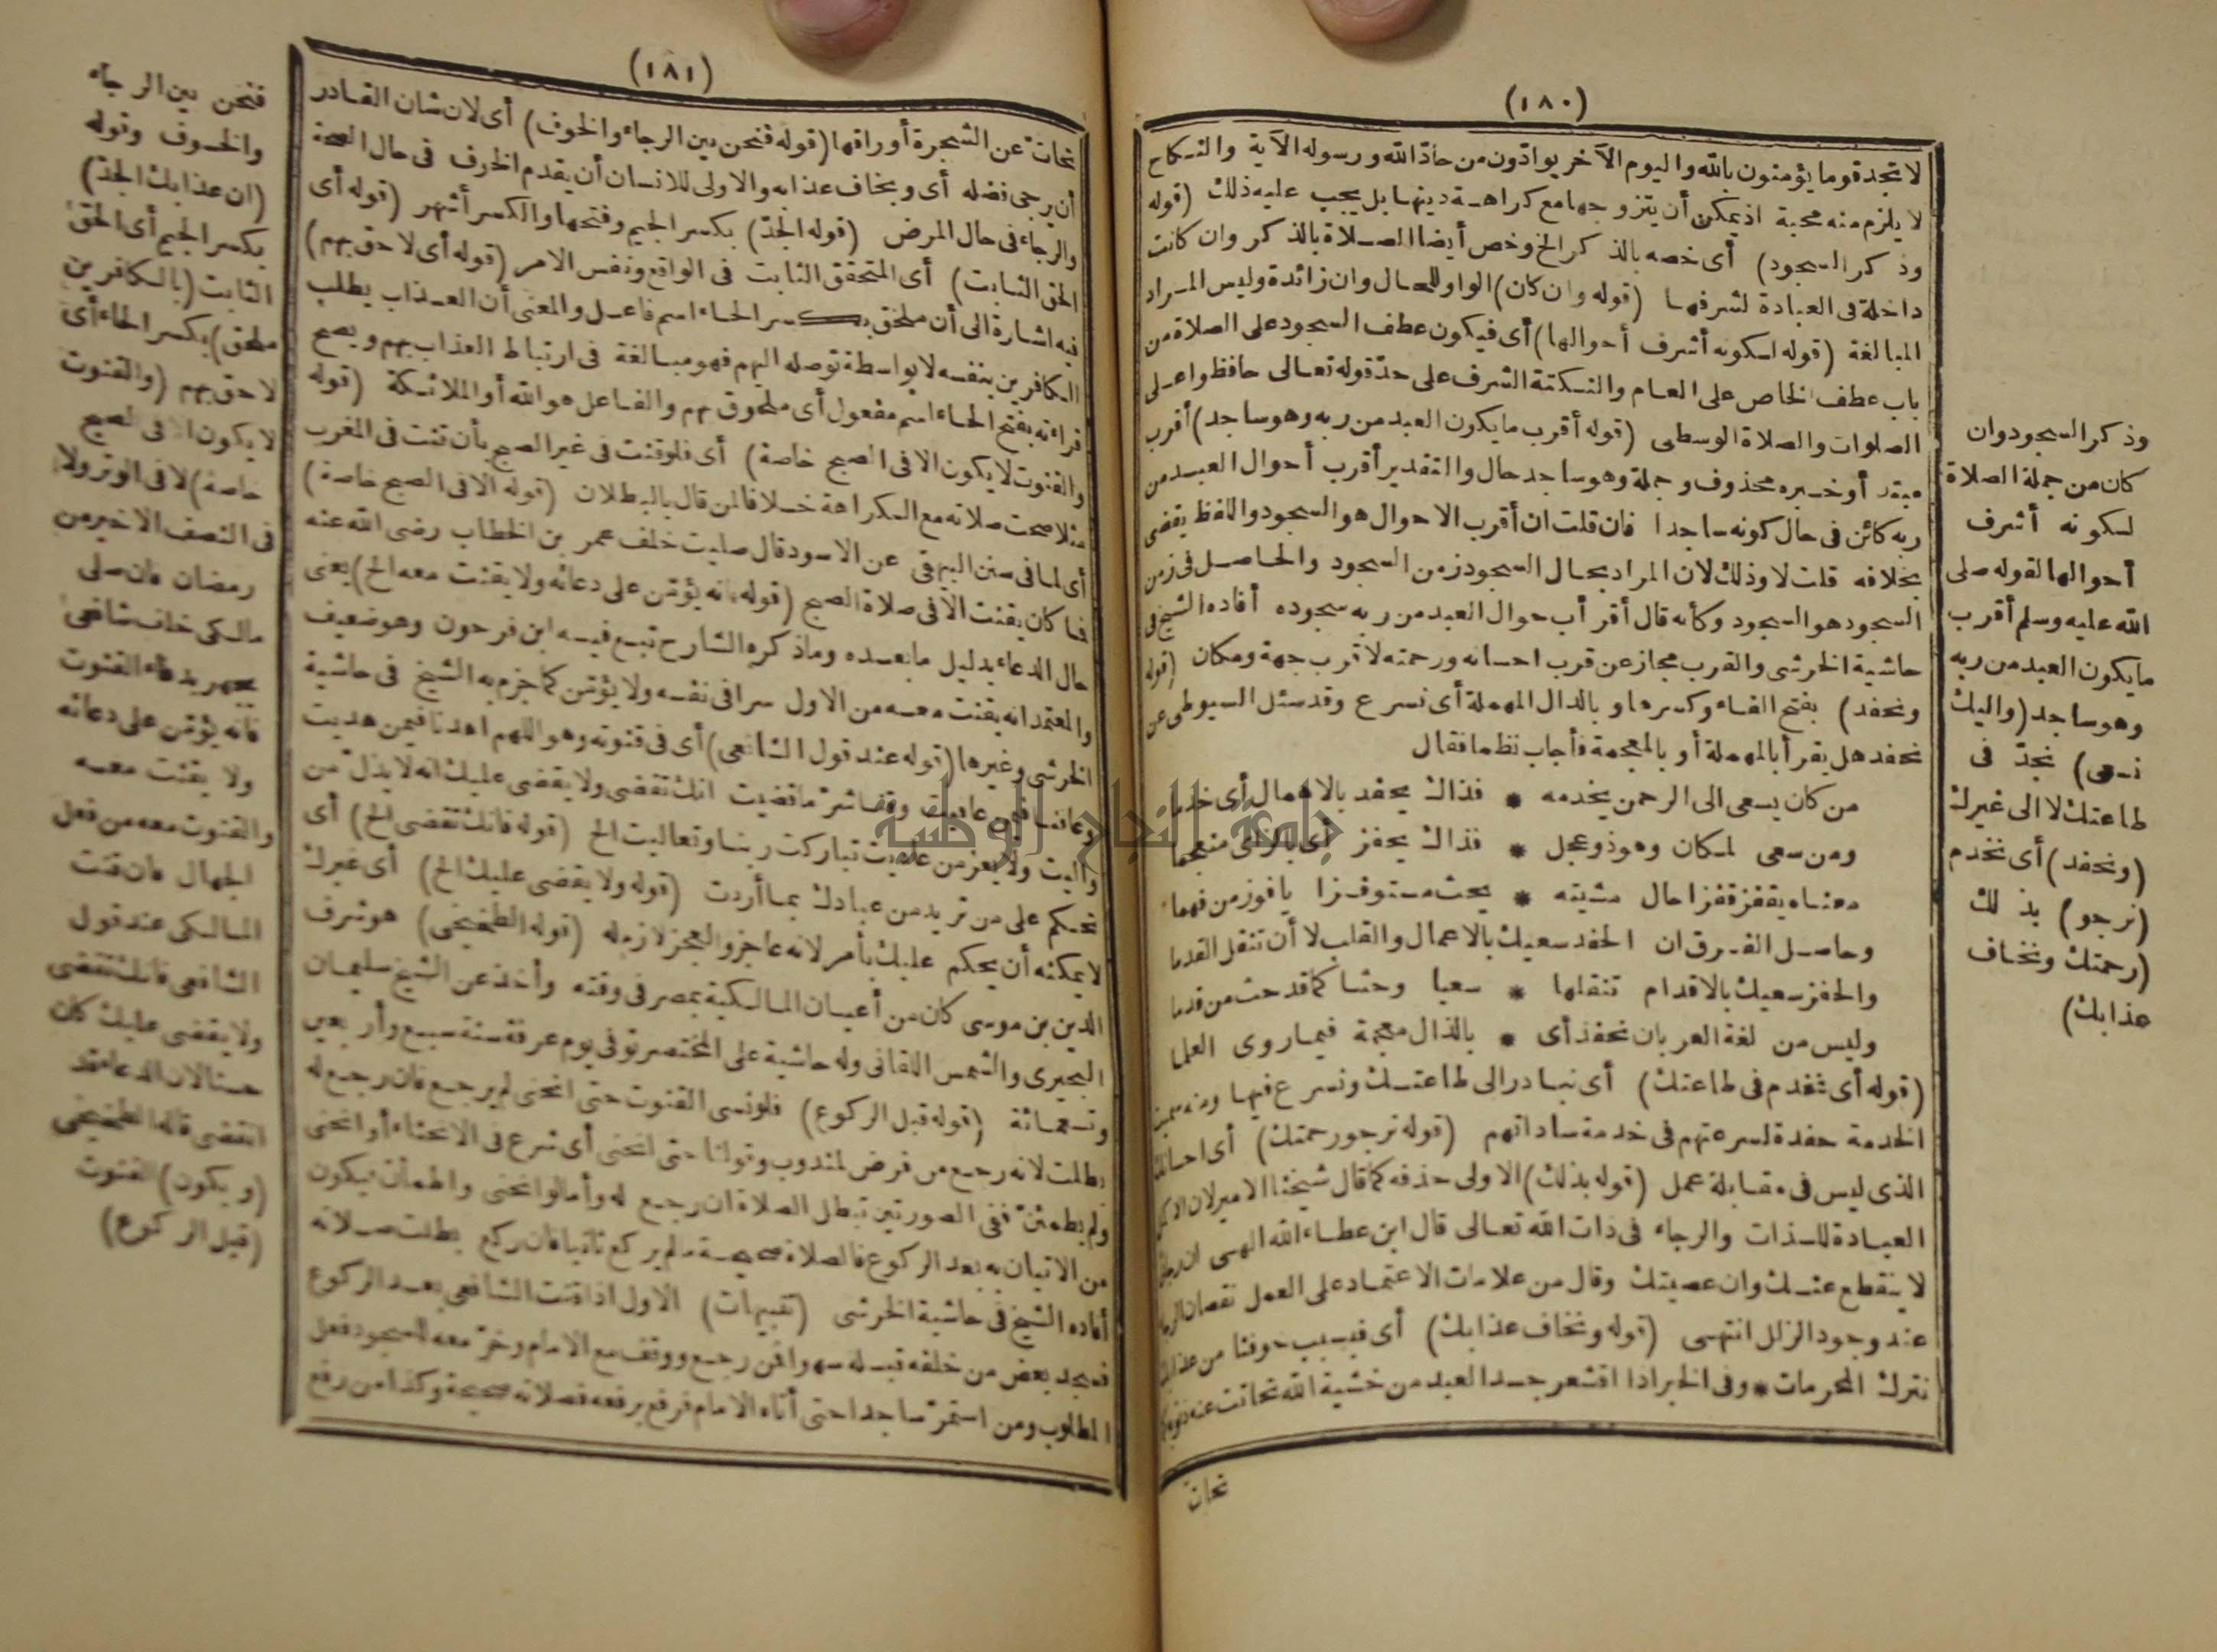 (١٨٠)
لا تجد قوما يؤمنون بالله واليوم الآخر يوادّون من حادّ الله ورسوله الآية والنكاح
لا يلزم منه محبة اذ يمكن أن يتزوجها مع كراهة دينها بل يجب عليه ذلك (قوله
وذكر السجود) أى خصه بالذكر الخ وخص أيضا الصلاة بالذكر وان كانت
داخلة فى العبادة لشرفها (قوله وان كان) الواو للحال وان زائدة وليس المراد
المبالغة (قوله لكونه أشرف أحوالها) أى فيكون عطف السجود على الصلاة من
باب عطف الخاص على العام والنكتة الشرف على حدّ قوله تعالى حافظوا على
الصلوات والصلاة الوسطى (قوله أقرب ما يكون العبد من ربه وهو ساجد) أقرب
مبتدأ وخبره محذوف وجملة وهو ساجد حال والتقدير أقرب أحوال العبد من
ربه كائن فى حال كونه ساجدا فان قلت ان أقرب الاحوال هو السجود واللفظ يقضى
بخلافه قلت لا وذلك لان المراد بحال السجود زمن السجود والحاصل فى زمن
السجود هو السجود وكأنه قال أقرب أحوال العبد من ربه سجوده أفاده الشيخ فى
حاشية الخرشى والقرب مجاز عن قرب احسانه ورحمته لا قرب جهة ومكان (قوله
ونحفد) بفتح الفاء وكسرها وبالدال المهملة أى نسرع وقد سئل السيوطى عن
نحفد هل يقرأ بالمهملة أو بالمعجمة فأجاب نظما فقال
من كان يسعى الى الرحمن يخدمه * فذاك يحفد بالاهمال أى خدما
ومن سعى لمكان وهو ذو عجل * فذاك يحفز أى بالزاى منعجما
معناه يقفز قفزا حال مشيته * يحث مستوفزا يا فوز من فهما
وحاصل الفرق ان الحفد سعيك بالاعمال والقلب لا أن تنقل القدما
والحفز سعيك بالاقدام تنقلها * سعيا وحثا كما قد حث من قدما
وليس من لغة العربان نحفذ أى * بالذال معجمة فيما روى العلما
(قوله أى نخدم فى طاعتك) أى نبادر الى طاعتك ونسرع فيها ومنه سميت
الخدمة حفدة لسرعتهم فى خدمة ساداتهم (قوله نرجو رحمتك) أى احسانك
الذى ليس فى مقابلة عمل (قوله بذلك) الاولى حذفه كما قال شيخنا الامير لان الاكمل
العبادة للذات والرجاء فى ذات الله تعالى قال ابن عطاء الله الهى ان رجائى
لا ينقطع عنك وان عصيتك وقال من علامات الاعتماد على العمل نقصان الرجاء
عند وجود الزلل انتهى (قوله ونخاف عذابك) أى فبسبب خوفنا من عذابك
نترك المحرمات * وفى الخبر اذا اقشعر جسد العبد من خشية الله تحاتت عنه ذنوبه كما
تحات
وذكر السجود وان
كان من جملة الصلاة
لكونه أشرف
أحوالها لقوله صلى
الله عليه وسلم أقرب
ما يكون العبد من ربه
وهو ساجد (واليك
نسعى) نجدّ فى
طاعتك لا الى غيرك
(ونحفد) أى نخدم
(نرجو) بذلك
(رحمتك ونخاف
عذابك)
(١٨١)
تحاتّ عن الشجرة أوراقها (قوله فنحن بين الرجاء والخوف) أى لان شان القادر
أن يرجى فضله أى ويخاف عذابه والاولى للانسان أن يقدم الخوف فى حال الصحة
والرجاء فى حال المرض (قوله الجدّ) بكسر الجيم وفتحها والكسر أشهر (قوله أى
الحق الثابت) أى المتحقق الثابت فى الواقع ونفس الامر (قوله أى لاحق بهم)
فيه اشارة الى أن ملحق بكسر الحاء اسم فاعل والمعنى أن العذاب يطلب
الكافرين بنفسه لا بواسطة توصله اليهم فهو مبالغة فى ارتباط العذاب بهم ويصح
قراءته بفتح الحاء اسم مفعول أى ملحوق بهم والفاعل هو الله أو الملائكة (قوله
والقنوت لا يكون الا فى الصبح خاصة) أى فلو قنت فى غير الصبح بأن قنت فى المغرب
مثلا صحت صلاته مع الكراهة خلافا لمن قال بالبطلان (قوله الا فى الصبح خاصة)
أى لما فى سنن البيهقى عن الاسود قال صليت خلف عمر بن الخطاب رضى الله عنه
فما كان يقنت الا فى صلاة الصبح (قوله فانه يؤمّن على دعائه ولا يقنت معه الخ) يعنى
حال الدعاء بدليل ما بعده وما ذكره الشارح تبع فيه ابن فرحون وهو ضعيف
والمعتمد انه يقنت معه من الاول سرا فى نفسه ولا يؤمّن كما جزم به الشيخ فى حاشية
الخرشى وغيرها (قوله عند قول الشافعى) أى فى قنوته وهو اللهم اهدنا فيمن هديت
وعافنا فيمن عافيت وقنا شرّ ما قضيت انك تقضى ولا يقضى عليك انه لا يذلّ من
واليت ولا يعز من عاديت تباركت ربنا وتعاليت الخ (قوله فانك تقضى الخ) أى
تحكم على من تريد من عبادك بما أردت (قوله ولا يقضى عليك الخ) أى غيرك
لا يمكنه أن يحكم عليك بأمر لانه عاجز والعجز لازم له (قوله الطخيخى) هو شرف
الدين بن موسى كان من أعيان المالكية بمصر فى وقته وأخذ عن الشيخ سليمان
البحيرى والشمس اللقانى وله حاشية على المختصر توفى يوم عرفة سنة سبع وأربعين
وتسعمائة (قوله قبل الركوع) فلو نسى القنوت حتى انحنى لم يرجع فان رجع له
بطلت لانه رجع من فرض لمندوب وقولنا حتى انحنى أى شرع فى الانحناء أو انحنى
ولم يطمئنّ ففى الصورتين تبطل الصلاة ان رجع له وأما لو انحنى واطمأن فيكون
من الاتيان به بعد الركوع فالصلاة صحيحة ما لم يركع ثانيا فان ركع بطلت صلاته
أفاده الشيخ فى حاشية الخرشى (تنبيهات) الاول اذا قنت الشافعى بعد الركوع
فسجد بعض من خلفه قبله سهوا فمن رجع ووقف مع الامام وخرّ معه للسجود فعل
المطلوب ومن استمرّ ساجدا حتى أتاه الامام فرفع برفعه فصلاته صحيحة وكذا من رفع
فنحن بين الرجاء
والخوف وقوله
(ان عذابك الجدّ)
بكسر الجيم أى الحق
الثابت (بالكافرين
ملحق) بكسر الحاء أى
لاحق بهم (والقنوت
لا يكون الا فى الصبح
خاصة) لا فى الوتر ولا
فى النصف الاخير من
رمضان فان صلى
مالكى خلف شافعى
يجهر بدعاء القنوت
فانه يؤمّن على دعائه
ولا يقنت معه
والقنوت معه من فعل
الجهال فان قنت
المالكى عند قول
الشافعى فانك تقضى
ولا يقضى عليك كان
حسنا لان الدعاء قد
انقضى قاله الطخيخى
(ويكون) القنوت
(قبل الركوع)
جامعة النجاح الوطنية